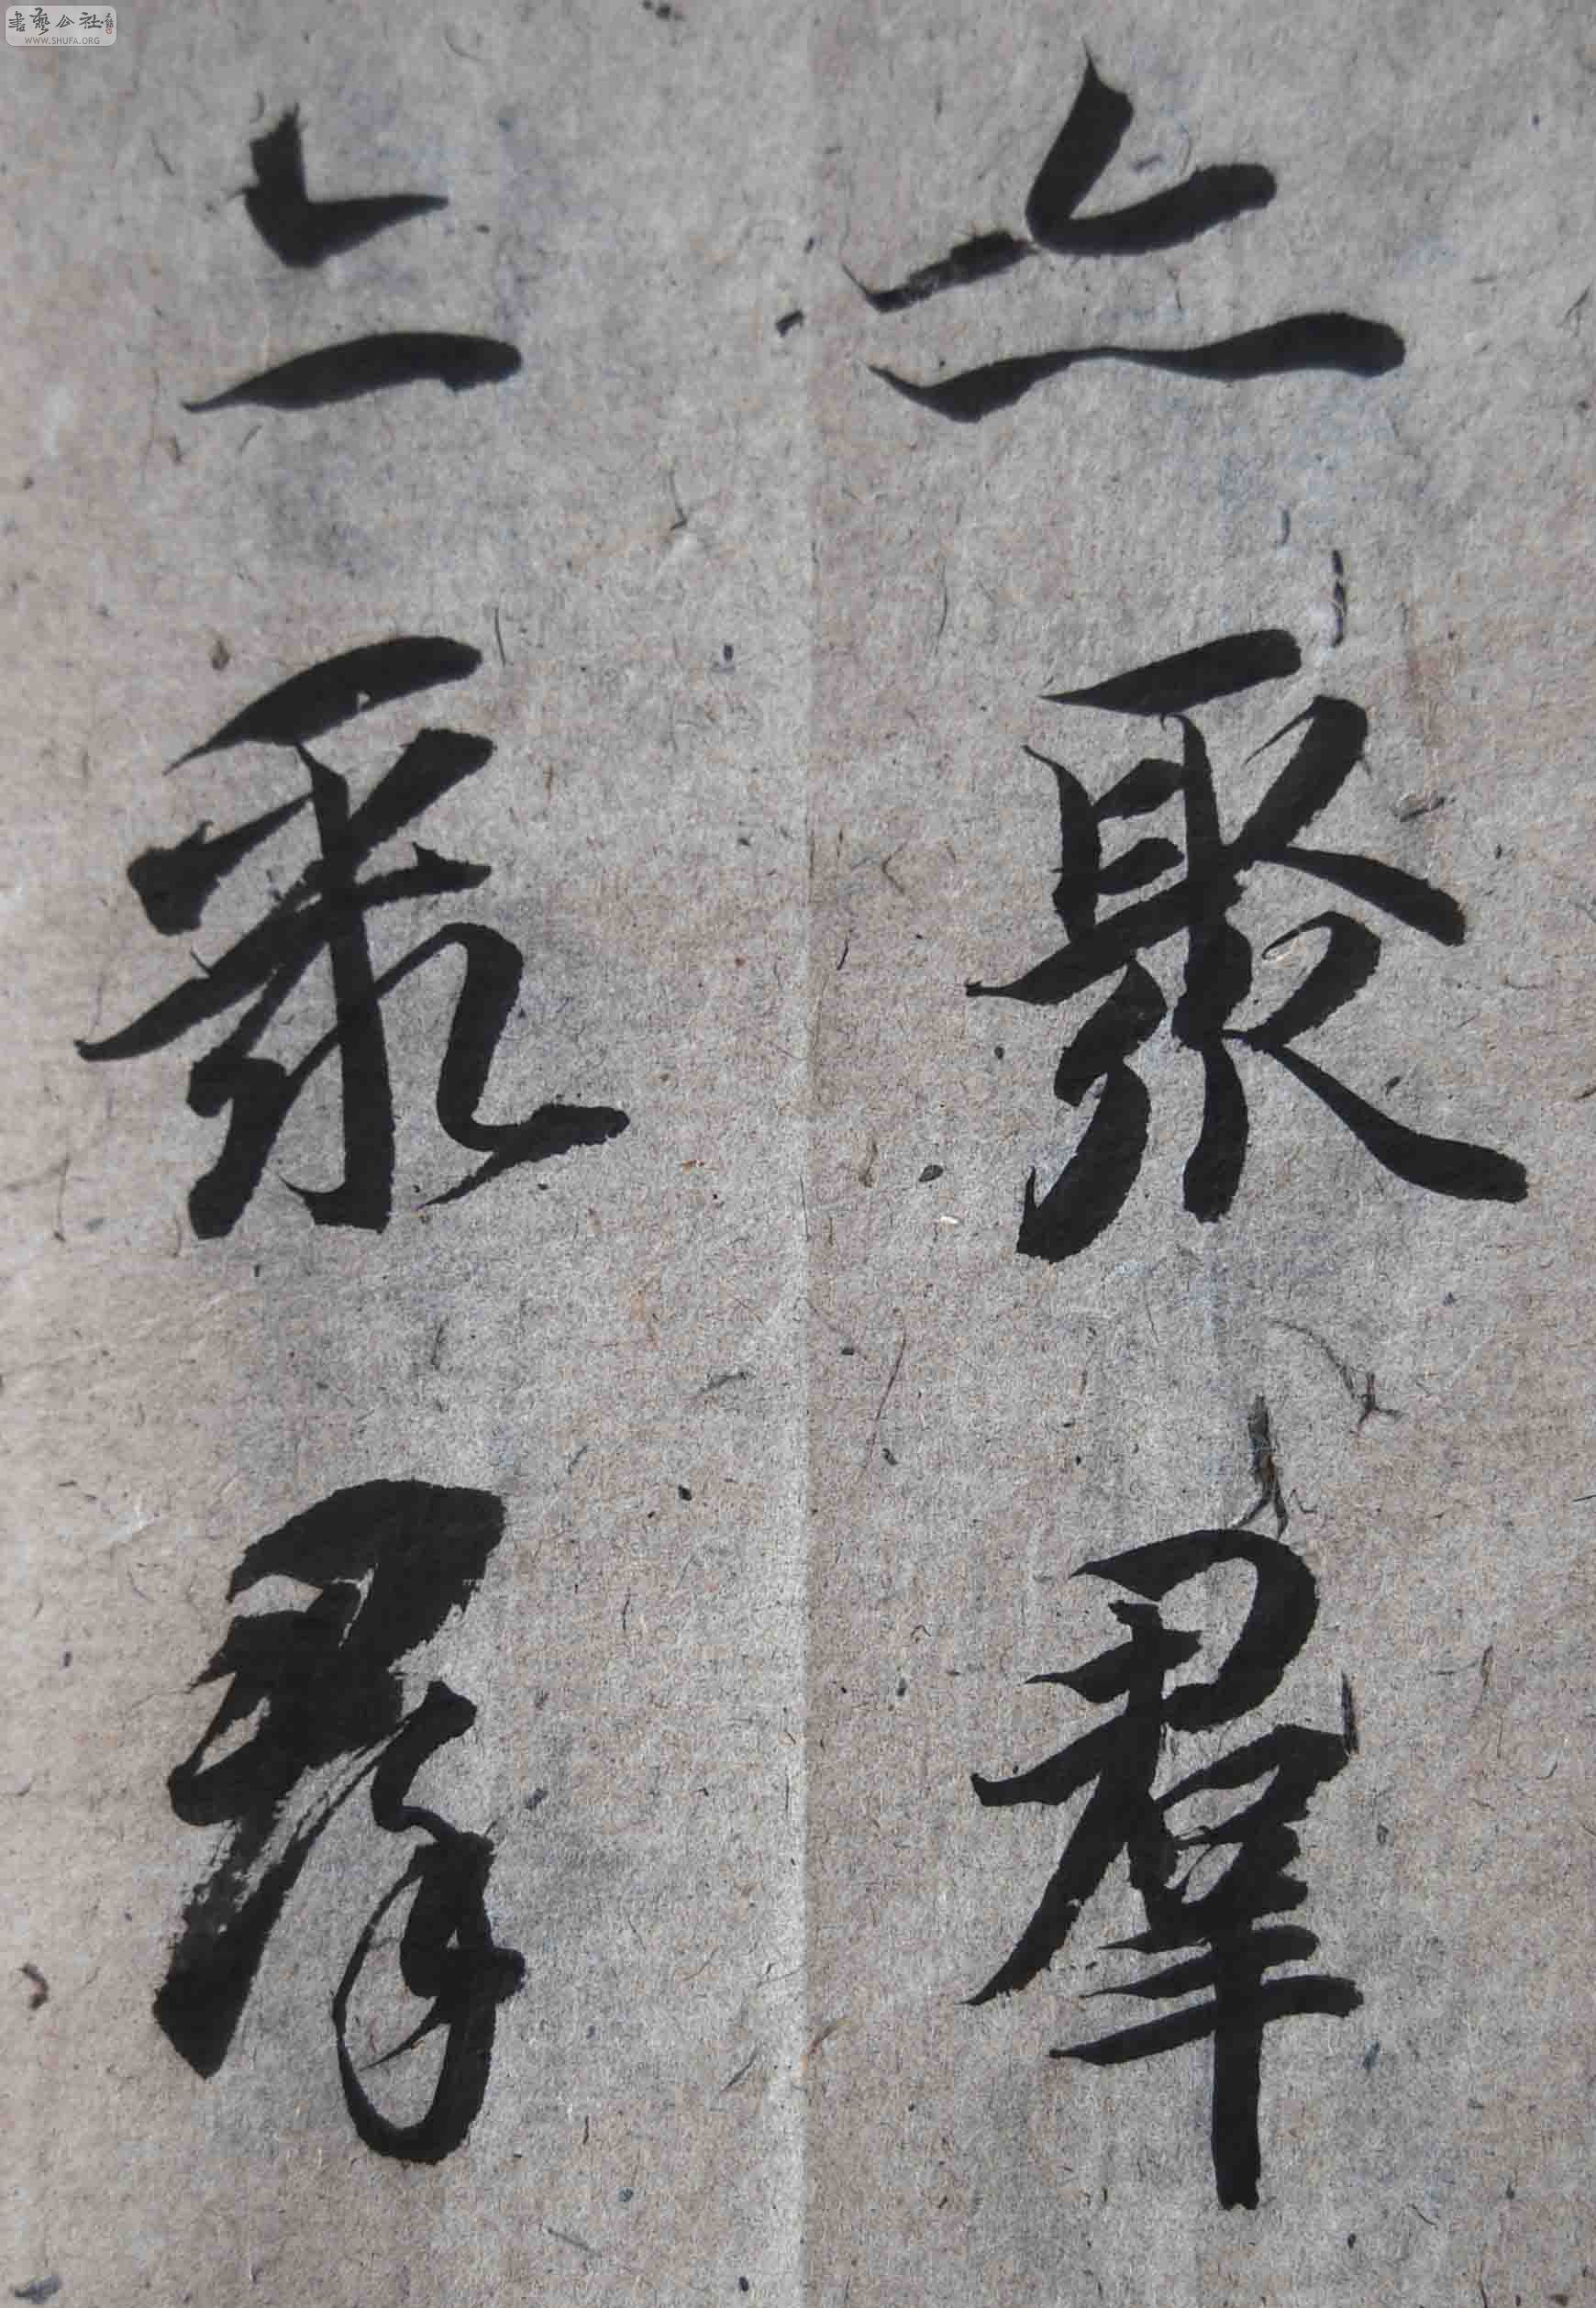 書藝公社
WWW.SHUFA.ORG
亦聚羣
亦聚羣